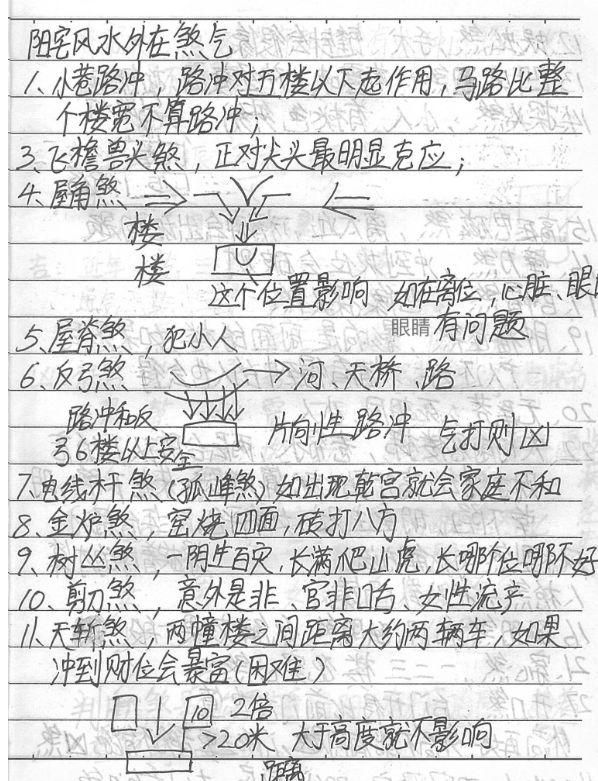 阳宅风水外在煞气
1、小巷路冲，路冲对五楼以下起作用，马路比整
个楼宽不算路冲；
3、飞檐兽头煞，正对尖头最明显克应；
4、屋角煞
楼
楼
这个位置影响 如在离位，心脏、眼
眼睛 有问题
5、屋脊煞，犯小人
6、反弓煞 河、天桥、路
路冲和反 片向性路冲 乞打则凶
弓6楼以上安全
7、电线杆煞（孤峰煞）如出现乾宫就会家庭不和
8、金炉煞，窑烧四面，砖打八方
9、树丛煞，一阴生百灾，长满爬山虎，长哪个位哪不好
10、剪刀煞，意外是非、官非口舌、女性流产
11、天斩煞，两幢楼之间距离大约两辆车，如果
冲到财位会暴富（困难）
10 2倍
>20米 大于高度就不影响
距离